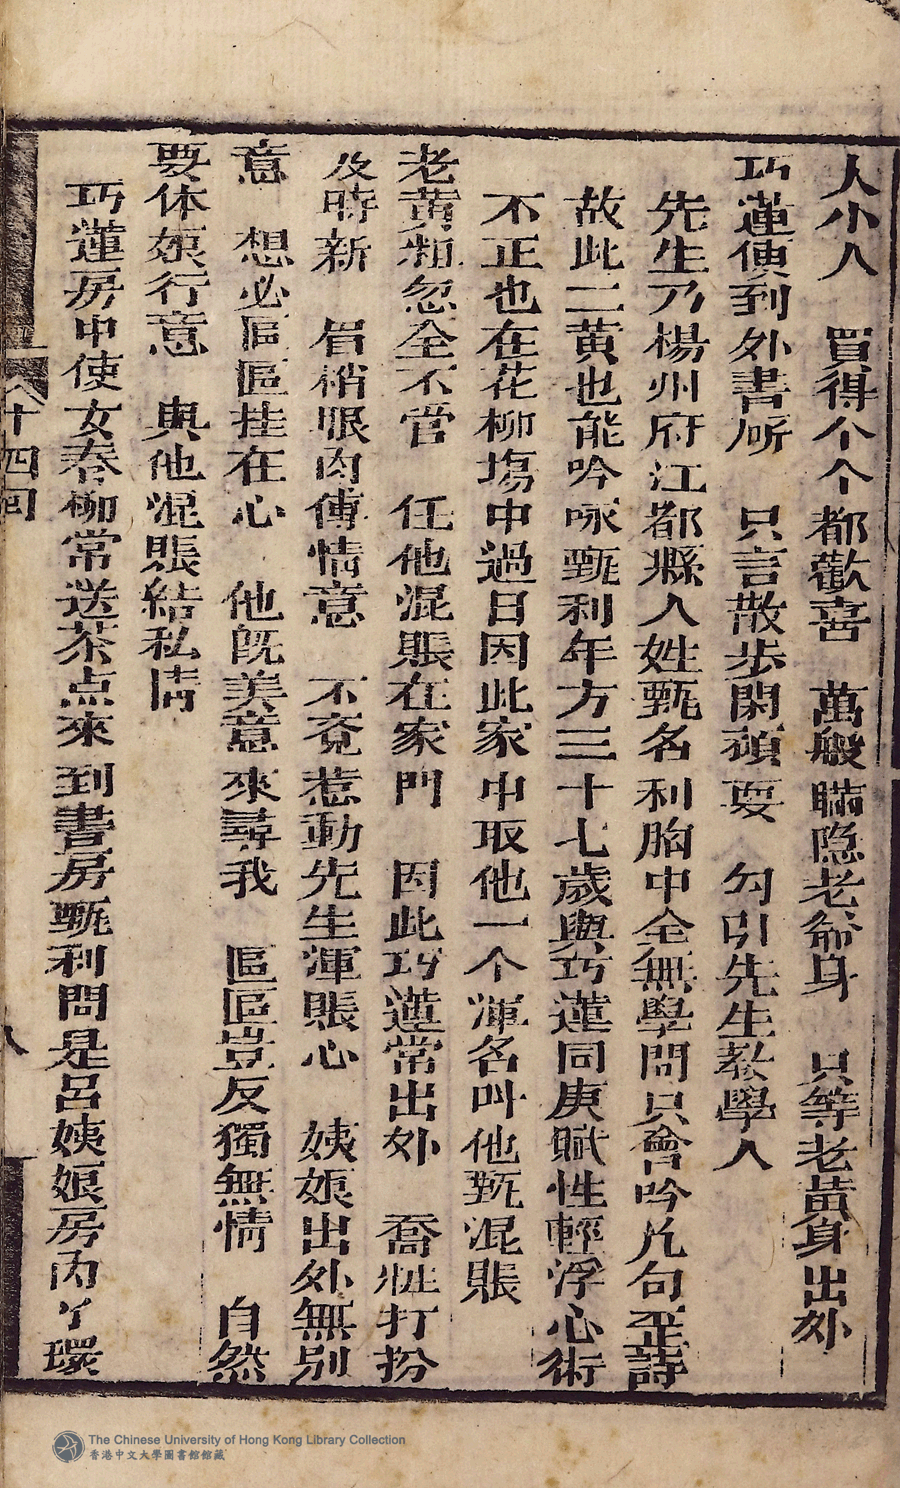 人小人　買得个个都歡喜　萬般瞞隐老爺身　只等老黄身出外
巧蓮便到外書所　只言散歩閑頑耍　勾引先生教學人
先生乃楊州府江都縣人姓甄名利胸中全無學問只會吟几句歪詩
故此二黄也能吟啄甄利年方三十七歲與巧蓮同庚賦性輕浮心術
不正也在花柳塲中過日因此家中取他一个渾名叫他甄混賬
老黄粗忽全不管　任他混賬在家門　因此巧蓮常出外　喬粧打扮
及時新　眉梢眼肉傳情意　不免惹動先生渾賬心　姨娘出外無別
意　想必區區挂在心　他既美意來尋我　區區豈反獨無情　自然
要体娘行意　與他混賬結私情
巧蓮房中使女奉柳常送茶点來到書房甄利問是呂姨娘房内丫環
十四回
八
The Chinese University of Hong Kong Library Collection
香港中文大學圖書館館藏